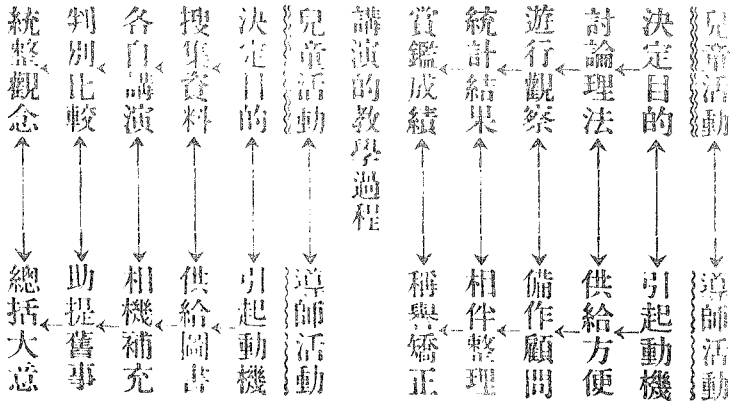 兒童活動
導師活動
決定目的
引起動機
討論理法
供給方便
遊行觀察
備作顧問
統計結果
相伴整理
賞鑑成績
稱與矯正
講演的教學過程
兒童活動
導師活動
決定目的
引起動機
搜集資料
供給圖書
各自講演
相機補充
判別比較
助提舊事
統整觀念
總括大意